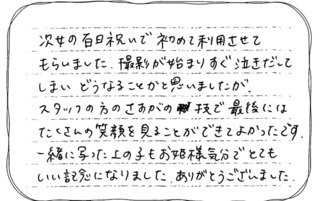 次女の百日祝いで初めて利用させて
もらいました。撮影が始まりすぐ泣きだして
しまいどうなることかと思いましたが、
スタッフの方のさすがの技で最後には
たくさんの笑顔を見ることができてよかったです。
一緒に写った上の子もお姫様気分でとても
いい記念になりました。ありがとうございました。